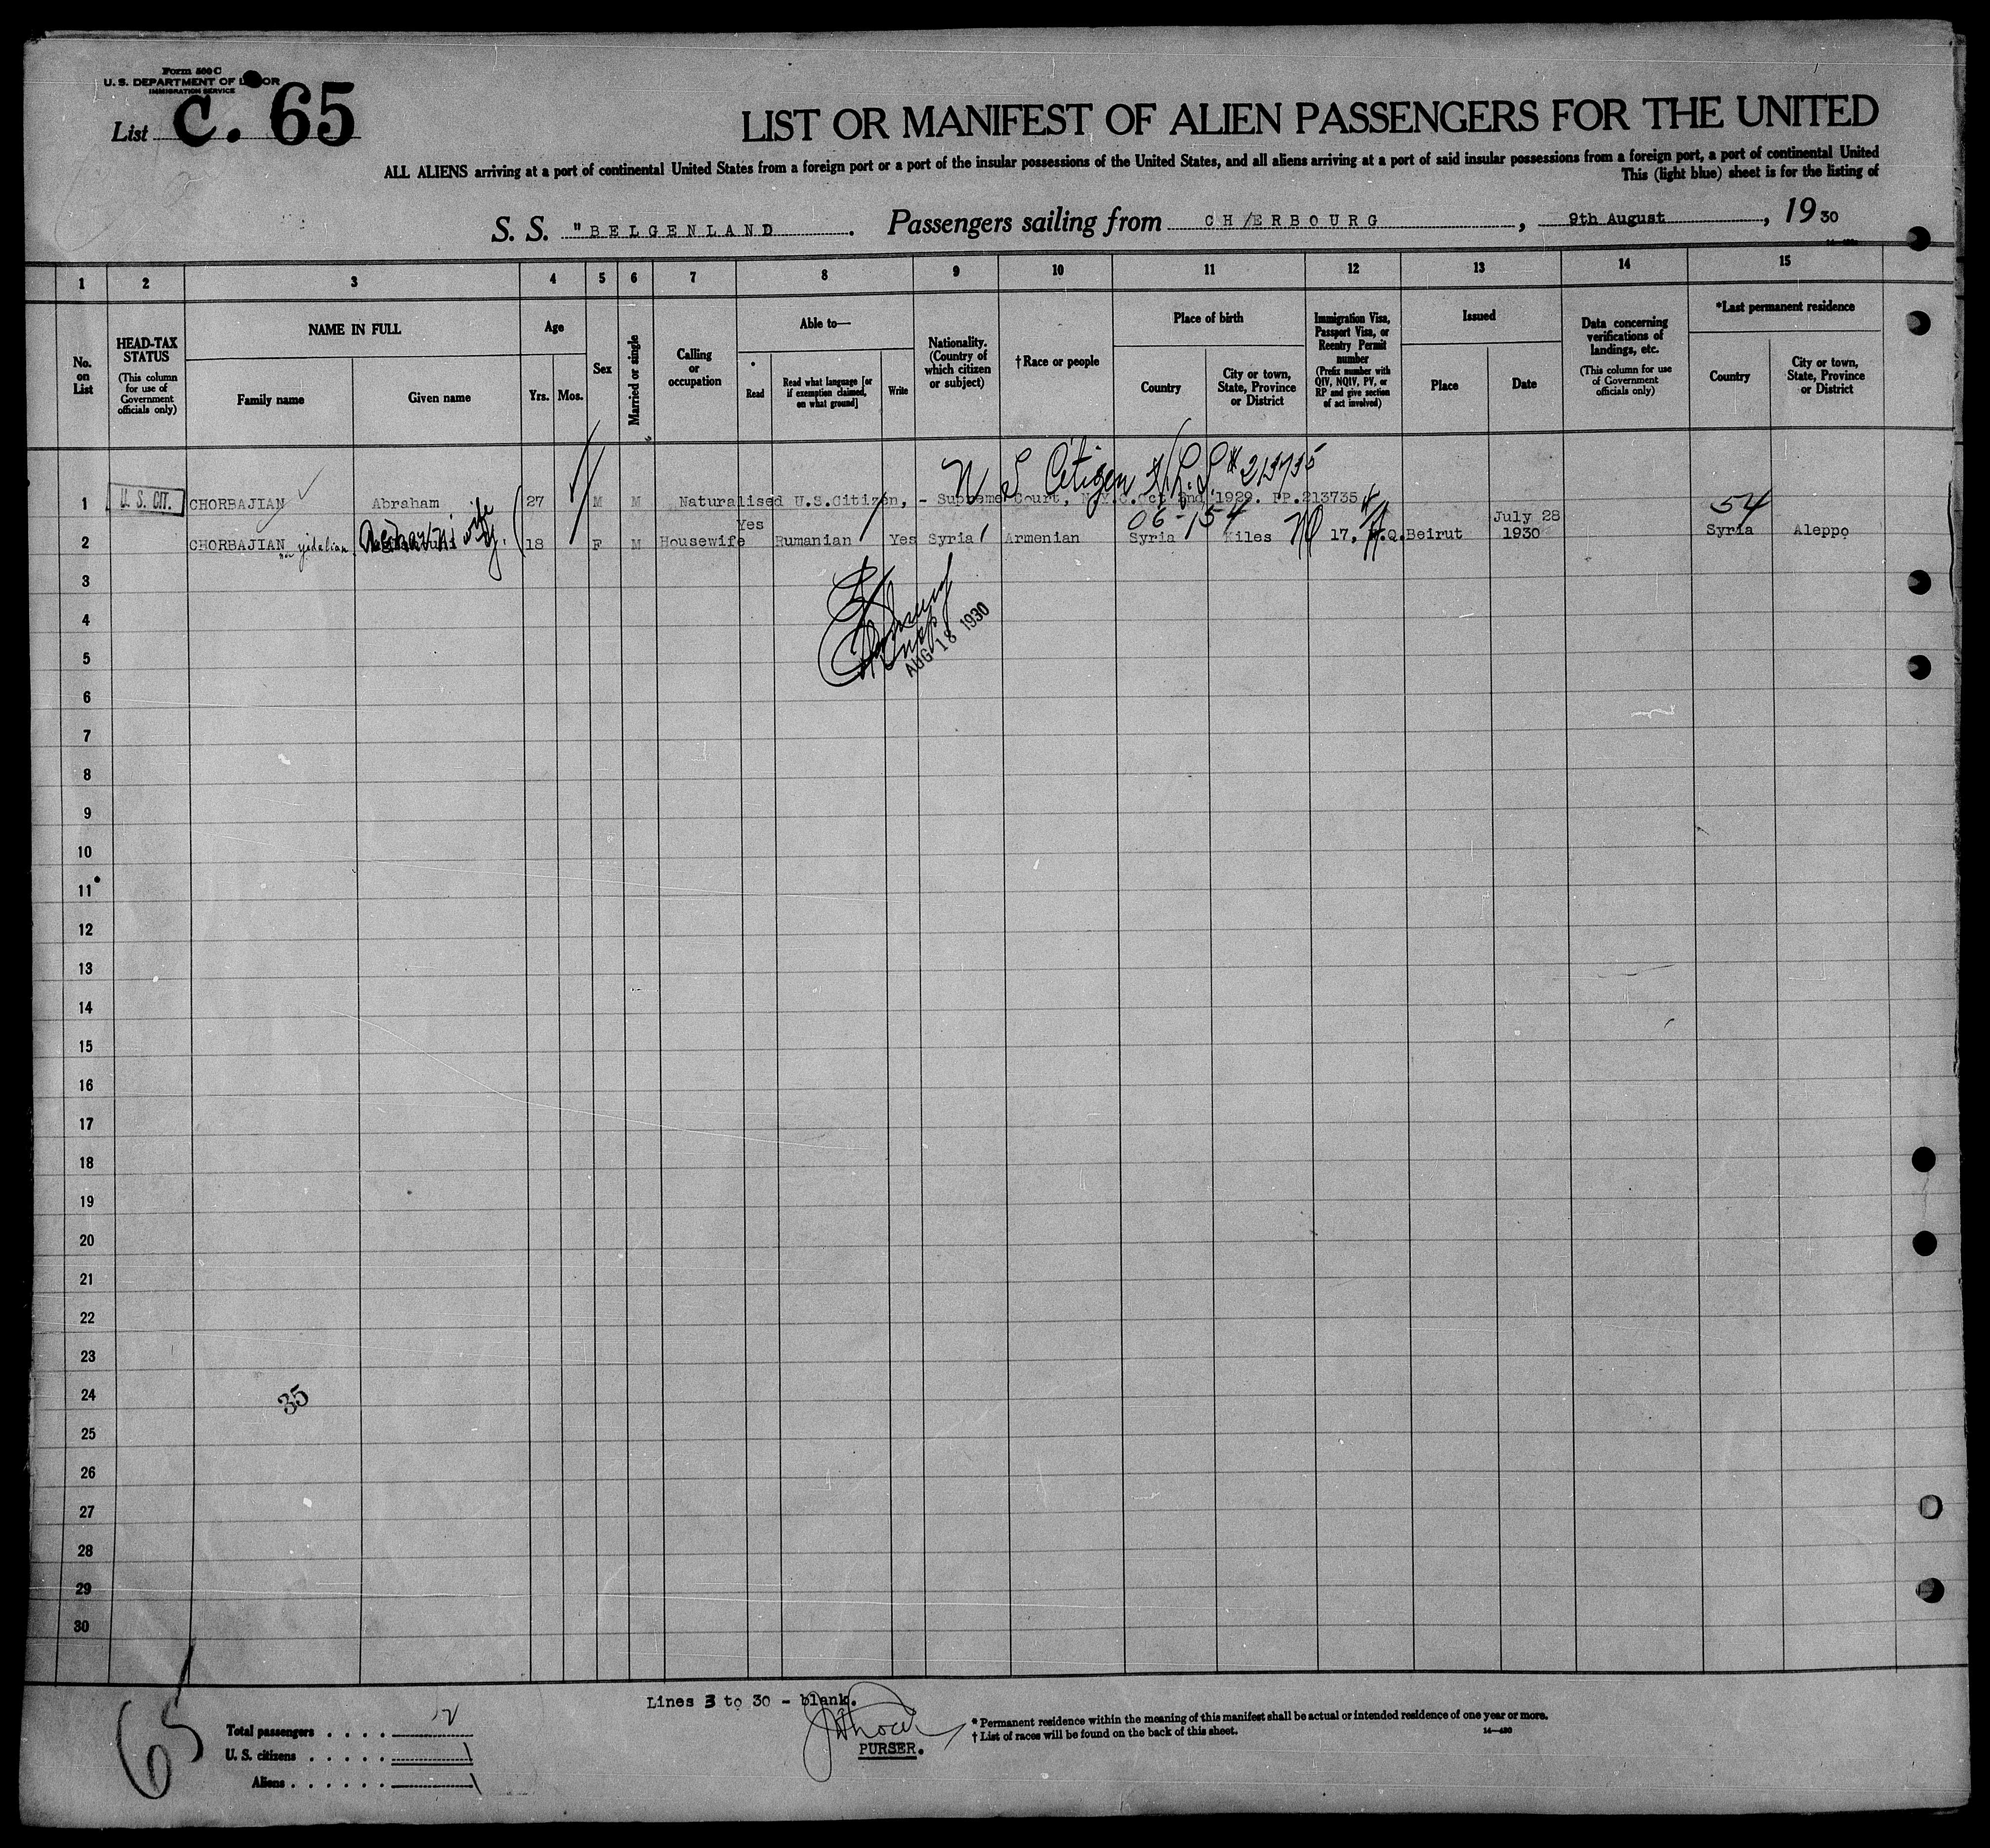 Form 500 C
U. S. DEPARTMENT OF LABOR
IMMIGRATION SERVICE
List C. 65
LIST OR MANIFEST OF ALIEN PASSENGERS FOR THE UNITED
ALL ALIENS arriving at a port of continental United States from a foreign port or a port of the insular possessions of the United States, and all aliens arriving at a port of said insular possessions from a foreign port, a port of continental United
This (light blue) sheet is for the listing of
S. S. "BELGENLAND . Passengers sailing from CH/ERBOURG , 9th August , 19 30
1 2 3 4 5 6 7 8 9 10 11 12 13 14 15
No. on List
HEAD-TAX STATUS
(This column for use of Government officials only)
NAME IN FULL
Family name
Given name
Age
Yrs.
Mos.
Sex
Married or single
Calling or occupation
Able to—
Read
Read what language [or if exemption claimed, on what ground]
Write
Nationality. (Country of which citizen or subject)
† Race or people
Place of birth
Country
City or town, State, Province or District
Immigration Visa, Passport Visa, or Reentry Permit number
(Prefix number with QIV, NQIV, PV, or RP and give section of act involved)
Issued
Place
Date
Data concerning verifications of landings, etc.
(This column for use of Government officials only)
*Last permanent residence
Country
City or town, State, Province or District
Citizen # 213735
1 U. S. CIT. CHORBAJIAN Abraham 27 M M Naturalised U.S.Citizen, - Supreme Court, N.Y.C. Oct 2nd 1929. PP.213735
wife
06-154
54
2 CHORBAJIAN yidalian 18 F M Housewife Yes Rumanian Yes Syria Armenian Syria Kiles 17, N.Q. Beirut July 28 1930 Syria Aleppo
3
4
AUG 18 1930
5
6
7
8
9
10
11
12
13
14
15
16
17
18
19
20
21
22
23
24
35
25
26
27
28
29
30
65
Lines 3 to 30 - blank.
Total passengers . . . . 2
U. S. citizens . . . . . 1
Aliens . . . . . . 1
PURSER.
* Permanent residence within the meaning of this manifest shall be actual or intended residence of one year or more.
† List of races will be found on the back of this sheet.
14—430